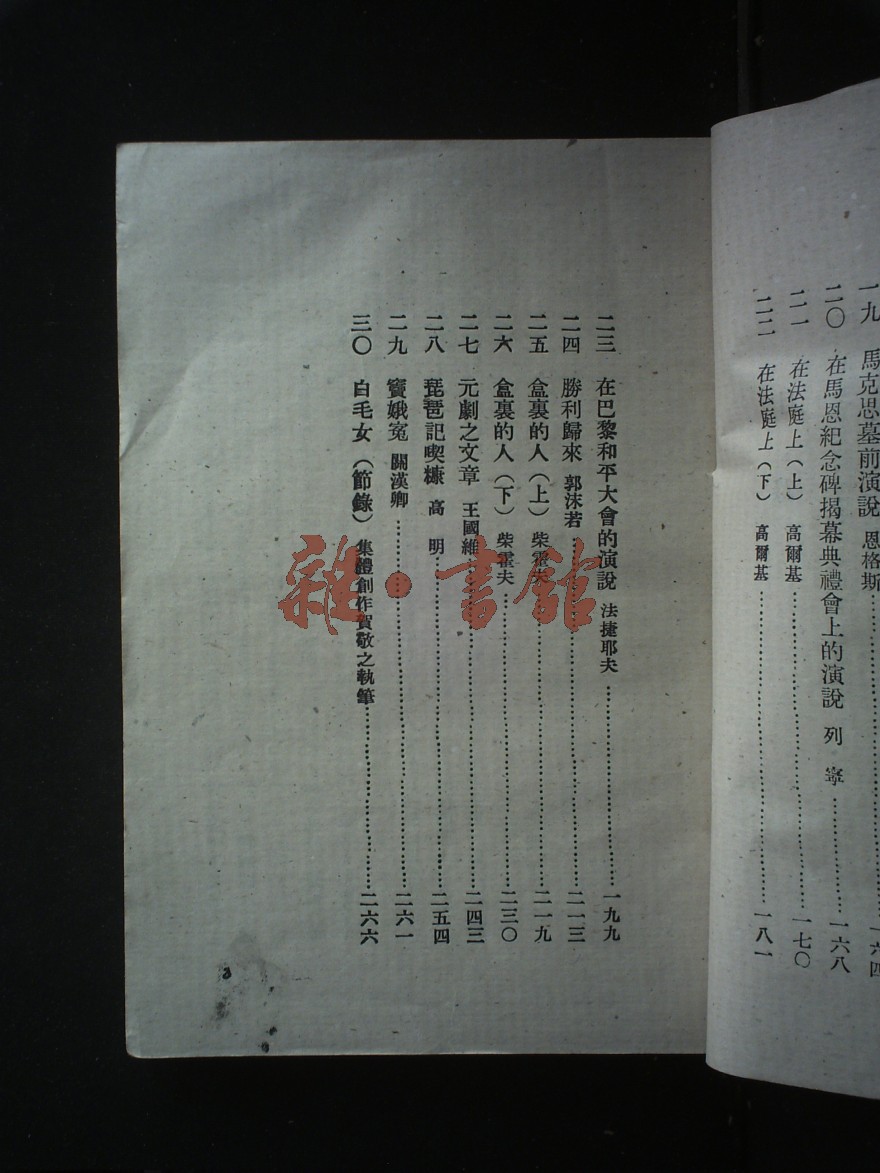 一九 馬克思墓前演說 恩格斯……一六四
二〇 在馬恩紀念碑揭幕典禮會上的演說 列 寧……一六八
二一 在法庭上（上） 高爾基……一七〇
二二 在法庭上（下） 高爾基……一八一
二三 在巴黎和平大會的演說 法捷耶夫……一九九
二四 勝利歸來 郭沫若……二一三
二五 盒裏的人（上） 柴霍夫……二一九
二六 盒裏的人（下） 柴霍夫……二三〇
二七 元劇之文章 王國維……二四三
二八 琵琶記喫糠 高 明……二五四
二九 竇娥冤 關漢卿……二六一
三〇 白毛女（節錄） 集體創作賀敬之執筆……二六六
3
雜·書館